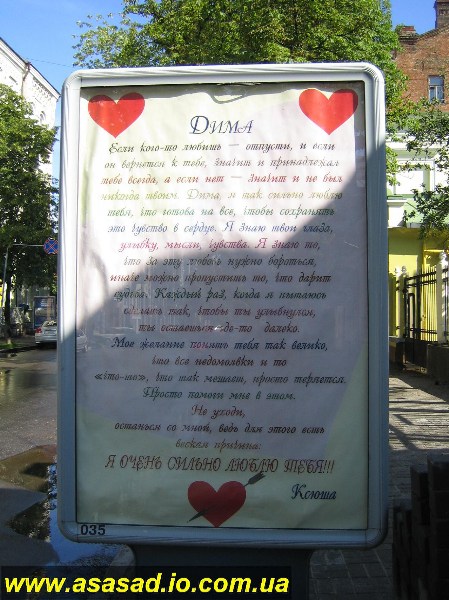 Дима
Если кого-то любишь — отпусти, и если
он вернется к тебе, значит и принадлежал
тебе всегда, а если нет — значит и не был
никогда твоим. Дима, я так сильно люблю
тебя, что готова на все, чтобы сохранить
это чувство в сердце. Я знаю твои глаза,
улыбку, мысли, чувства. Я знаю то,
что за эту любовь нужно бороться,
иначе можно пропустить то, что дарит
судьба. Каждый раз, когда я пытаюсь
сделать так, чтобы ты улыбнулся,
ты остаешься где-то далеко.
Мое желание понять тебя так велико,
что все недомолвки и то
«что-то», что так мешает, просто теряется.
Просто помоги мне в этом.
Не уходи,
останься со мной, ведь для этого есть
веская причина:
Я ОЧЕНЬ СИЛЬНО ЛЮБЛЮ ТЕБЯ!!!
Ксюша
035
www.asasad.io.com.ua